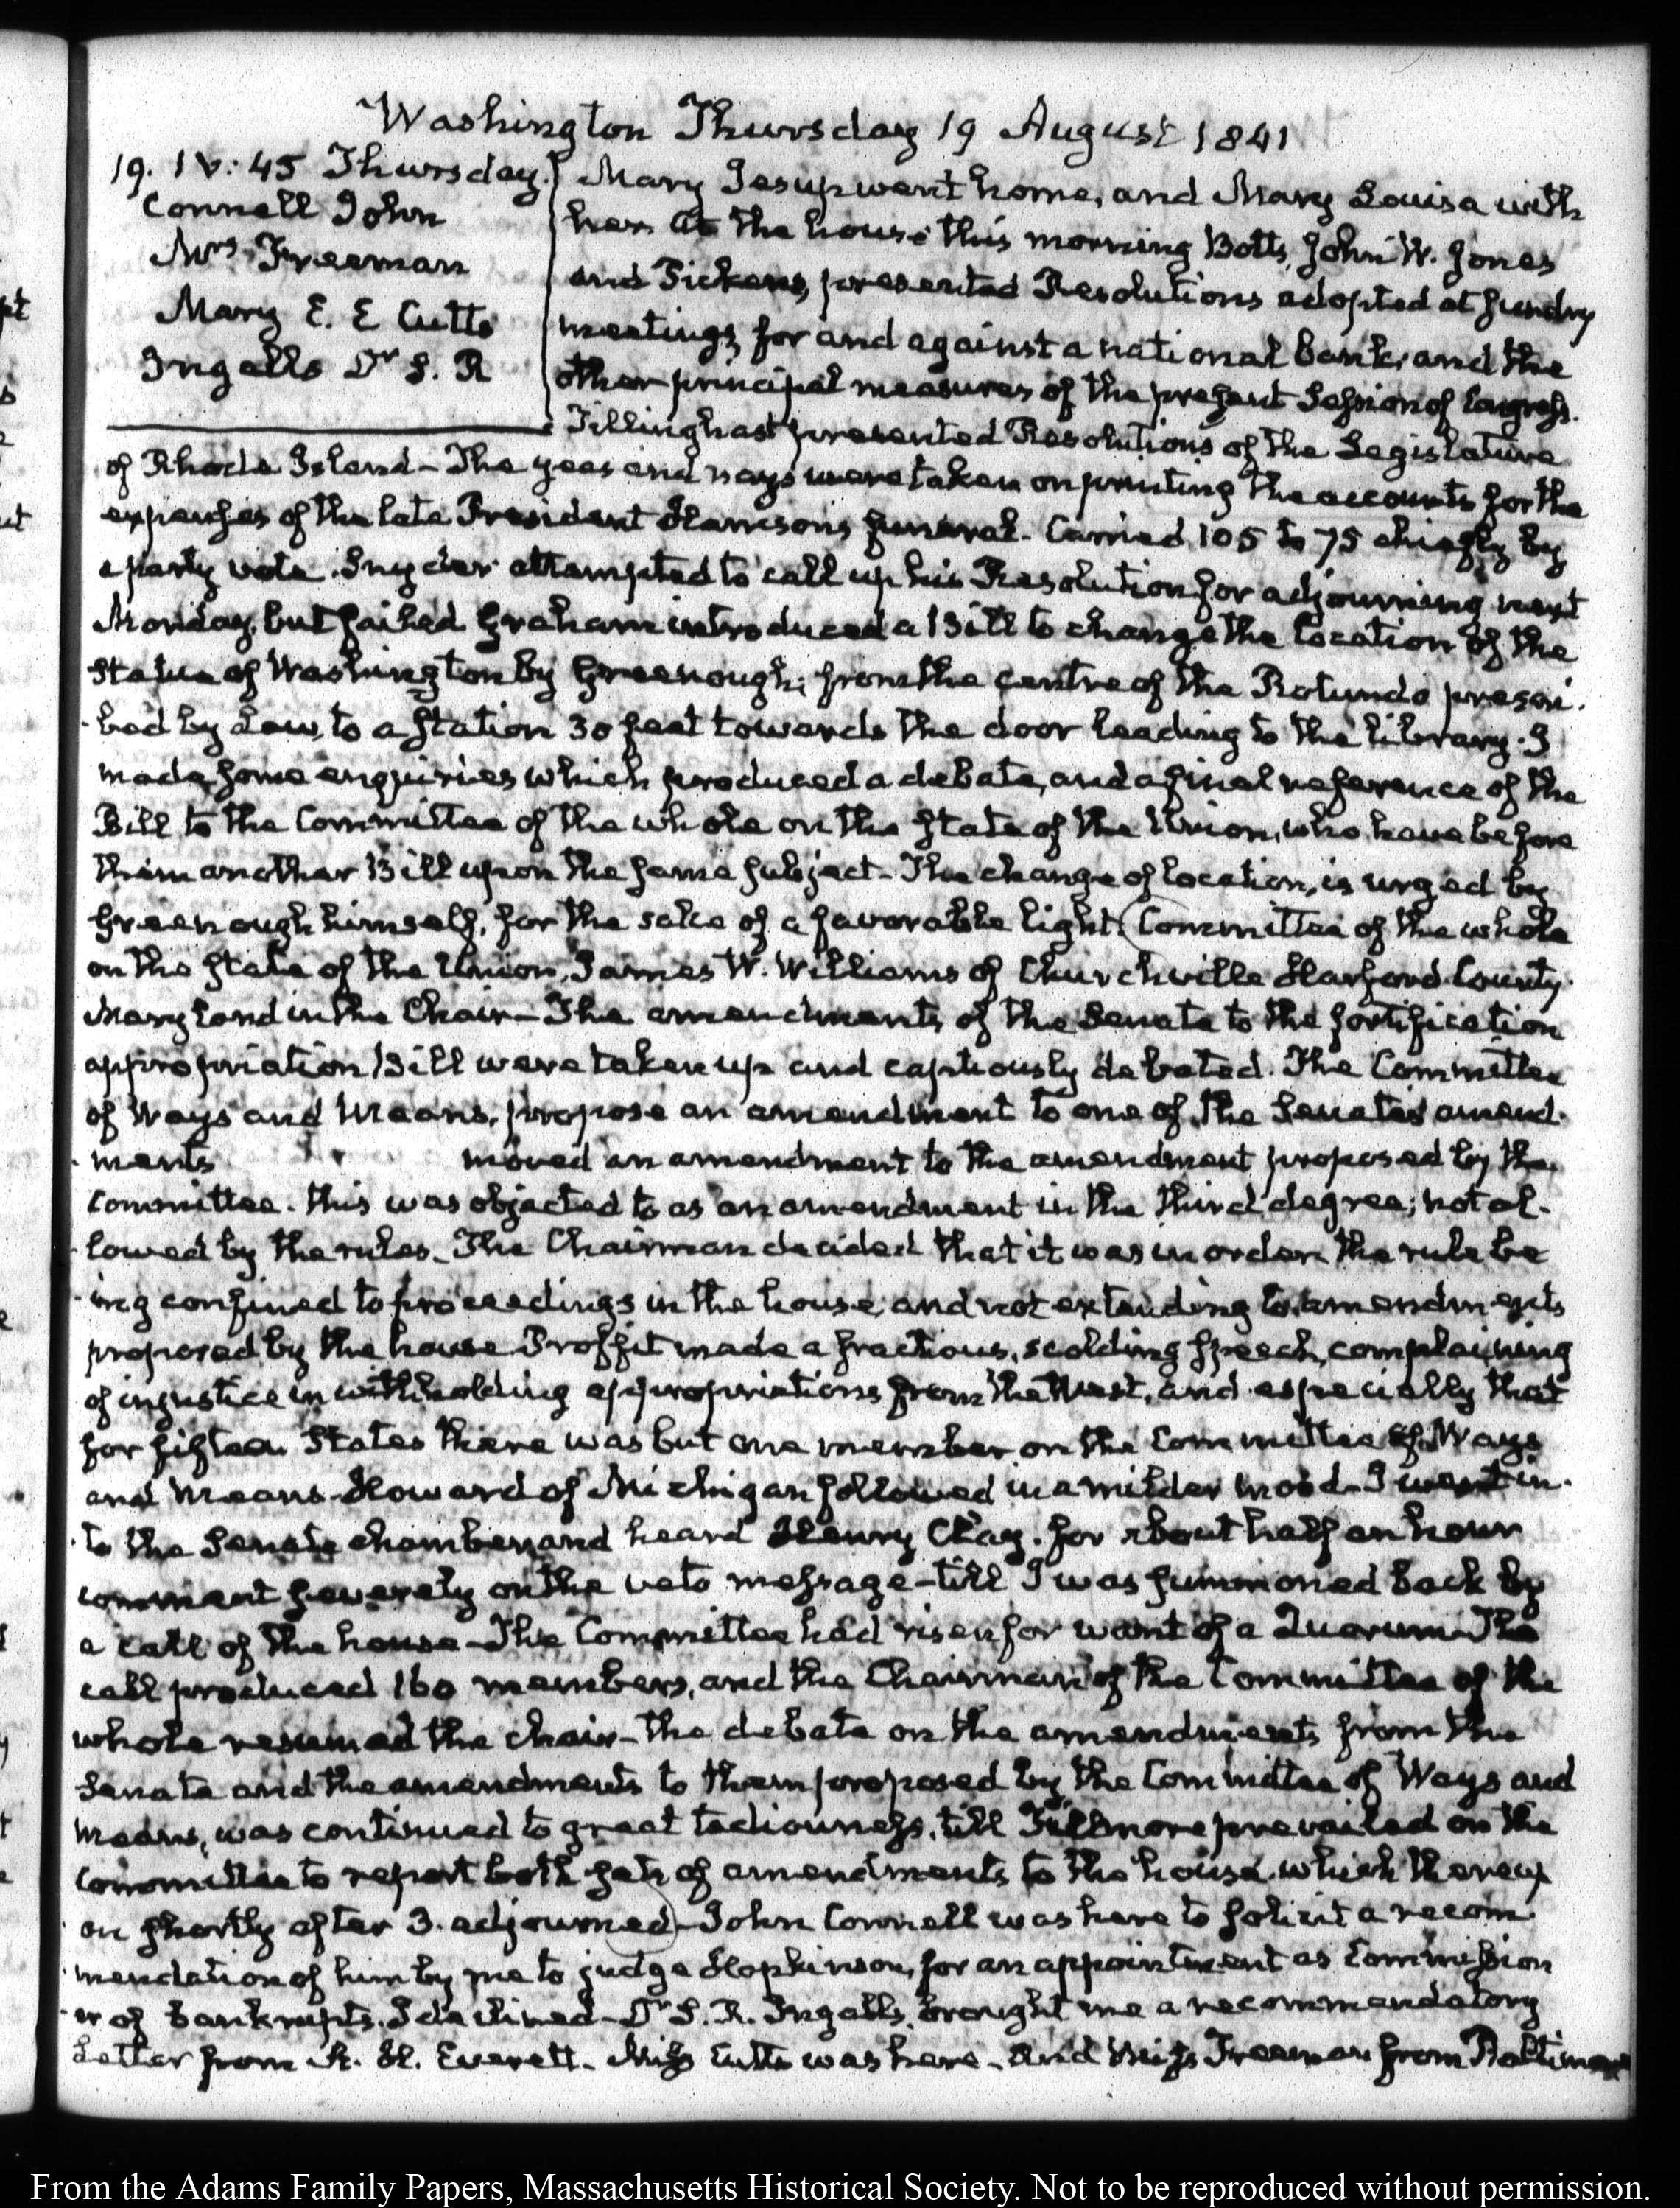 Washington Thursday 19 August 1841
19. IV: 45 Thursday.
Connell John
Mrs Freeman
Mary E. E Cutts
Ingalls Dr S. R
Mary Jesup went home, and Mary Louisa with
her. At the house this morning Botts, John W. Jones
and Pickens, presented Resolutions adopted at sundry
meetings for and against a national bank, and the
other principal measures of the present Session of Congress.
Tillinghast presented Resolutions of the Legislature
of Rhode Island – The yeas and nays were taken on printing the accounts for the
expenses of the late President Harrison's funeral. Carried 105 to 75 chiefly by
a party vote. Snyder attempted to call up his Resolution for adjourning next
Monday, but failed Graham introduced a Bill to change the location of the
Statue of Washington by Greenough; from the centre of the Rotundo prescri-
-bed by Law, to a station 30 feet towards the door leading to the library. I
made some enquiries which produced a debate, and a final reference of the
Bill to the Committee of the whole on the state of the Union, who have before
them another Bill upon the same subject – The change of location, is urged by
Greenough himself, for the sake of a favorable light. Committee of the whole
on the state of the Union, James W. Williams of Churchville Harford County
Maryland in the Chair – The amendments of the Senate to the fortification
appropriation Bill were taken up and captiously debated. The Committee
of Ways and Means, propose an amendment to one of the Senates' amend-
-ments moved an amendment to the amendment proposed by the
Committee. this was objected to as an amendment in the third degree; not al-
-lowed by the rules. The Chairman decided that it was in order the rule be
-ing confined to proceedings in the house, and not extending to amendments
proposed by the house Proffit made a fractious, scolding speech, complaining
of injustice in withholding appropriations from the West, and especially that
for fifteen States there was but one member on the Committee of Ways
and Means – Howard of Michigan followed in a milder mood – I went in-
-to the Senate chamber and heard Henry Clay. for about half an hour
comment severely on the veto message – till I was summoned back by
a call of the house – The Committee had risen for want of a Quorum – The
call produced 160 members, and the Chairman of the Committee of the
whole resumed the chair – the debate on the amendments from the
Senate and the amendments to them proposed by the Committee of Ways and
Means, was continued to great tediousness, till Fillmore prevailed on the
Committee to report both sets of amendments to the house, which thereup
on shortly after 3. adjourned – John Connell was here to solicit a recom-
-mendation of him by me to judge Hopkinson, for an appointment as Commission
-er of bankrupts. I declined – Dr S. R. Ingalls, brought me a recommendatory
Letter from A. H. Everett – Miss Cutts was here – and Miss Freeman from Baltimore
From the Adams Family Papers, Massachusetts Historical Society. Not to be reproduced without permission.